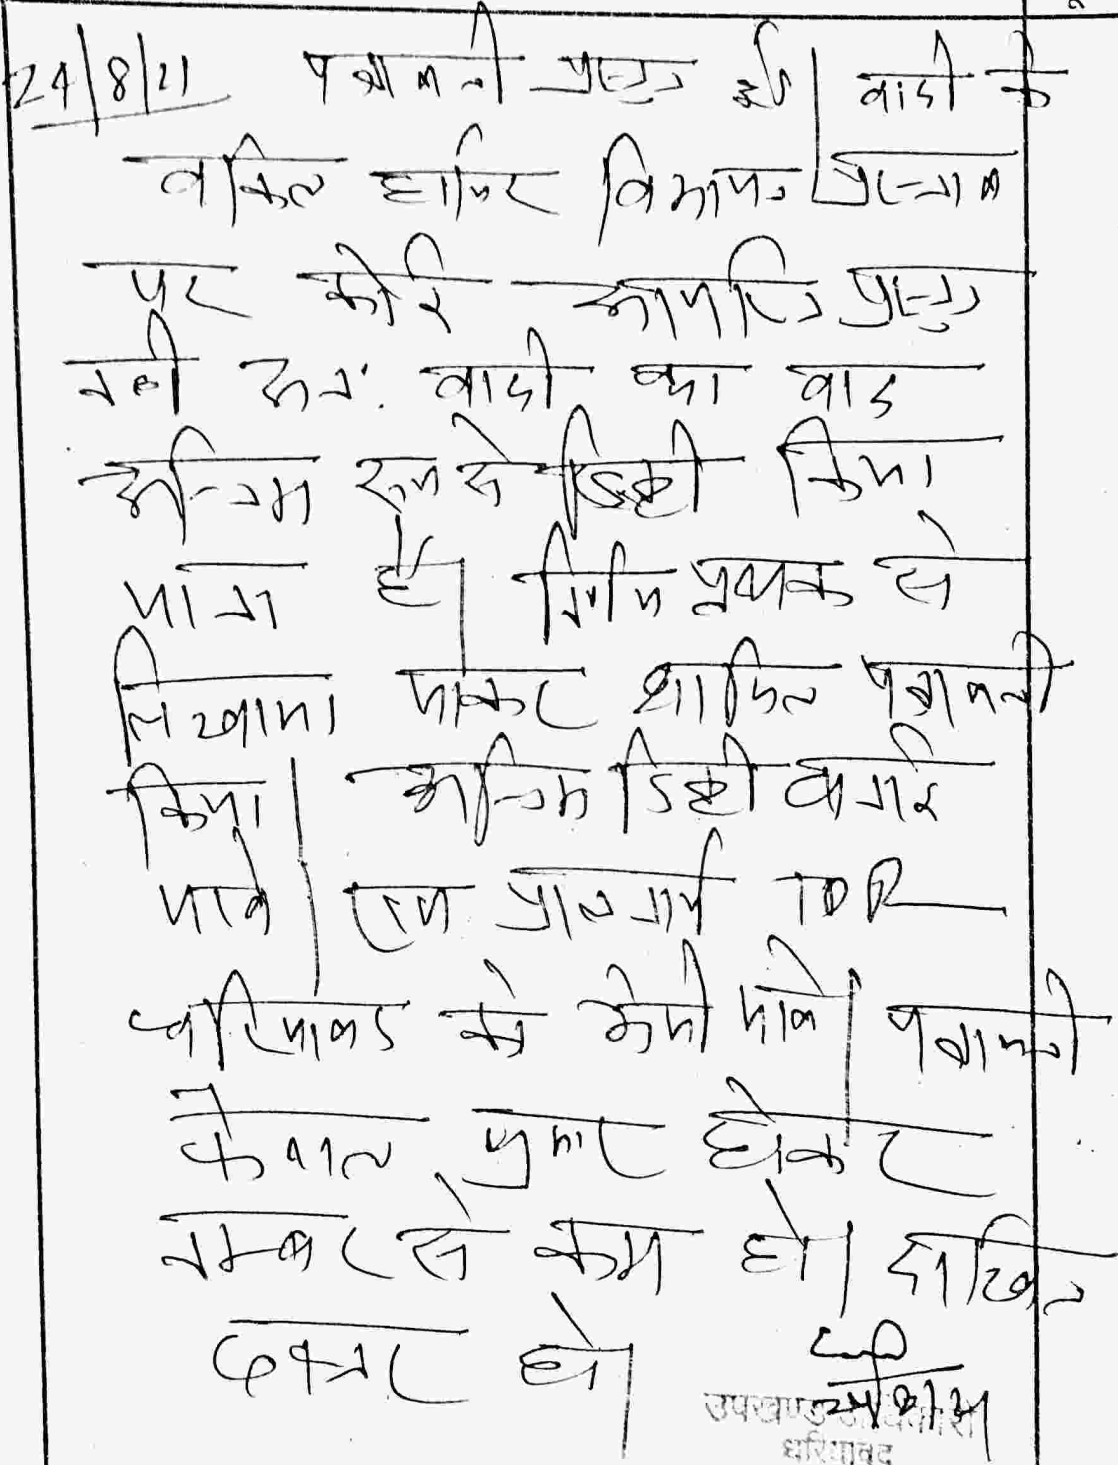 24/8/21 पत्रावली प्रस्तुत हुई। वादी के
वकिल हाजिर विभाजन प्रस्ताव
पर कोई आपत्ति प्रस्तुत
नही अतः वादी का वाद
अन्तिम रूप से डिक्री किया
जाता है। निर्णय पृथक से
लिखाया जाकर शामिल पत्रावली
किया। अन्तिम डिक्री बनाई
जावे। एक प्रति TDR
धरियावद को भेजी जावे। पत्रावली
फैसल शुमार होकर
नम्बर से कम हो। दाखिल
दफ्तर हो।
उपखण्ड अधिकारी
धरियावद